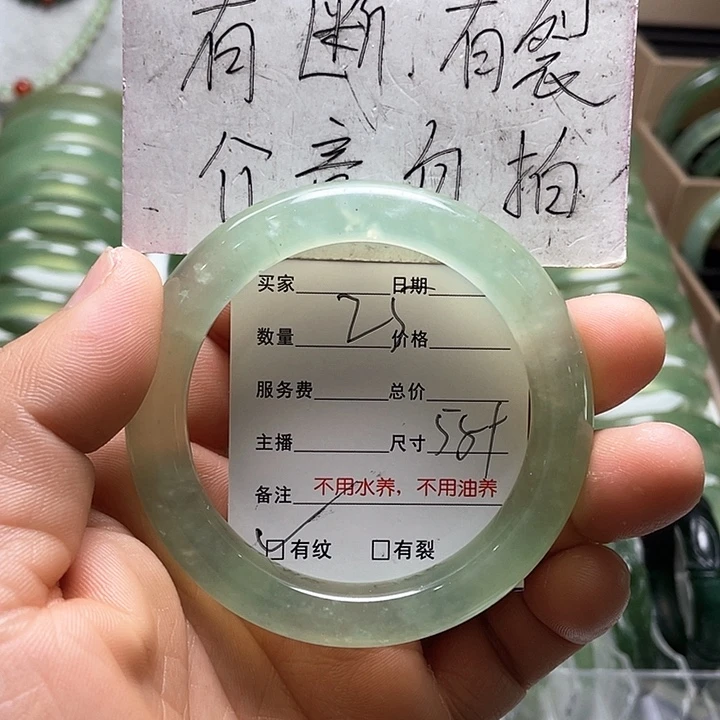 有断.有裂
介意勿拍
买家 日期
25
数量 价格
服务费 总价
主播 尺寸 58+
备注 不用水养，不用油养
☑有纹 □有裂